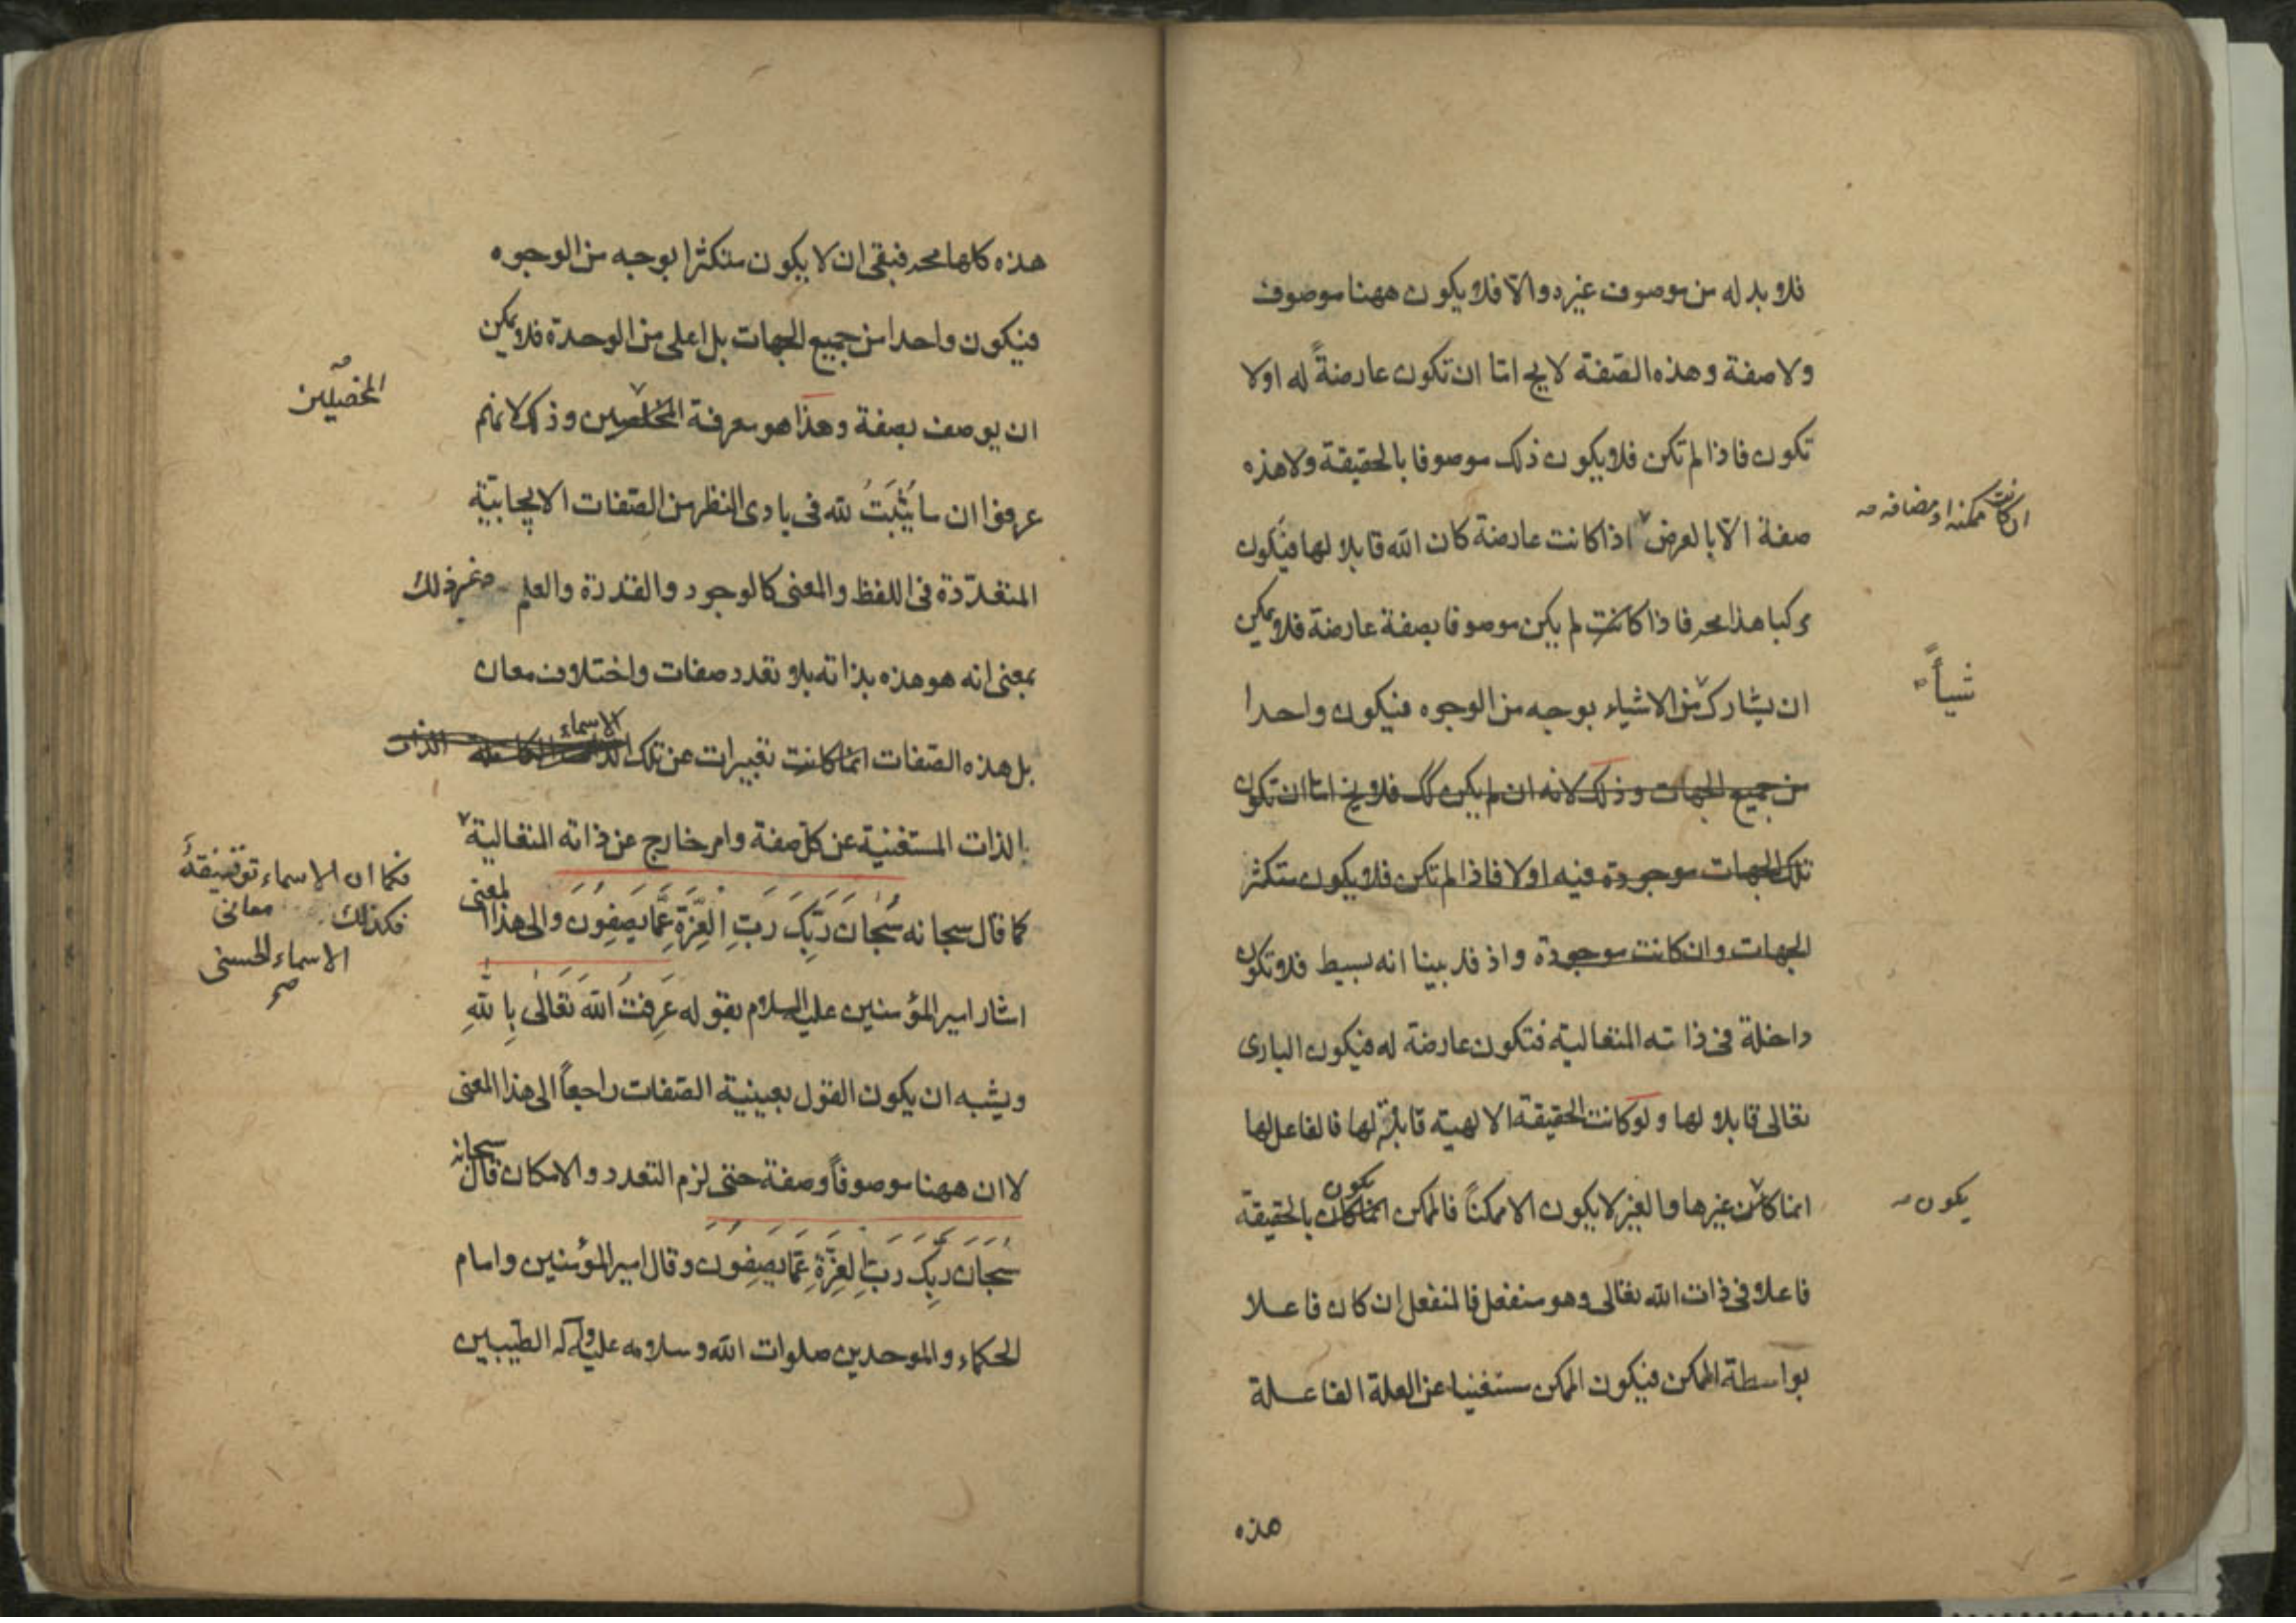 فلا بد له من موصوف غيره والا فلا يكون ههنا موصوف
ولا صفة وهذه الصّفة لايخ امّا ان تكون عارضةً له اولا
تكون فاذا لم تكن فلا يكون ذلك موصوفا بالحقيقة ولا هذه
صفة الّا بالعرض اذا كانت عارضة كان الله قابلا لها فيكون
ان كانت ممكنه او مضافه صه
مركبا هذا مح فاذا كانت لم يكن موصوفا بصفة عارضة فلا يمكن
ان يشارك من الاشياء بوجه من الوجوه فيكون واحدا
شيأً
من جميع الجهات وذلك لانه ان لم يكن كك فلا يخ امّا ان تكون
تلك الجهات موجودة فيه اولا فاذا لم تكن فلا يكون متكثر
الجهات وان كانت موجودة واذ قد بينا انه بسيط فلا تكون
داخلة فى ذاته المتعالية فتكون عارضة له فيكون البارى
تعالى قابلا لها ولو كانت الحقيقة الالهية قابلة لها فالفاعل لها
انما كان من غيرها والغير لا يكون الا ممكناً فالممكن انما كان يكون بالحقيقة
يكون صه
فاعلا فى ذات الله تعالى وهو منفعل فالمنفعل ان كان فاعلا
بواسطة الممكن فيكون الممكن مستغنيا عن العلة الفاعلة
هذه
هذه كلها مح فبقى ان لا يكون متكثرا بوجه من الوجوه
فيكون واحدا من جميع الجهات بل اعلى من الوحدة فلا يمكن
ان يوصف بصفة وهذا هو معرفة المخلصين وذلك لانهم
المحصّلين صه
عرفوا ان ما يُثْبَتُ لله فى بادى النظر من الصّفات الايجابيّة
المتعدّدة فى اللفظ والمعنى كالوجود والقدرة والعلم وغير ذلك
بمعنى انه هو هذه بذاته بلا تعدد صفات واختلاف معان
بل هذه الصّفات انما كانت تعبيرات عن تلك الاسماء الذات
الذات المستغنية عن كل صفة وامر خارج عن ذاته المتعالية
كما قال سبحانه سُبْحَانَ رَبِّكَ رَبِّ الْعِزَّةِ عَمَّا يَصِفُونَ والى هذا المعنى
فكما ان الاسماء توقيفيةٌ
فكذلك معانى
الاسماء الحسنى
صح
اشار امير المؤمنين عليه السلام بقوله عَرِفْتُ اللهَ تَعَالٰى بِاللهِ
ويشبه ان يكون القول بعينية الصّفات راجعاً الى هذا المعنى
لا ان ههنا موصوفاً وصفة حتى لزم التعدد والامكان قال سبحانه
سُبْحَانَ رَبِّكَ رَبِّ الْعِزَّةِ عَمَّا يَصِفُونَ وقال امير المؤمنين وامام
الحكماء والموحدين صلوات الله وسلامه عليه وآله الطيّبين